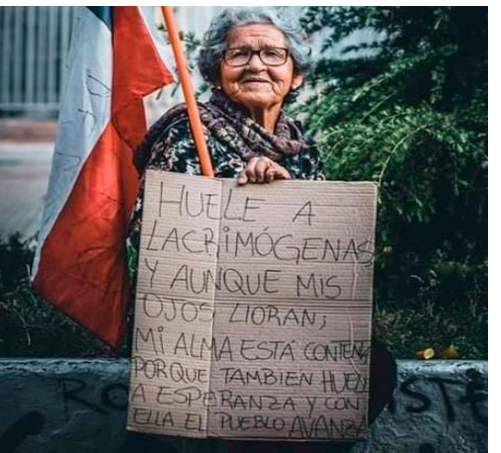 HUELE A
LACRIMÓGENAS
Y AUNQUE MIS
OJOS LLORAN;
MI ALMA ESTÁ CONTENTA
PORQUE TAMBIEN HUELE
A ESPERANZA Y CON
ELLA EL PUEBLO AVANZA